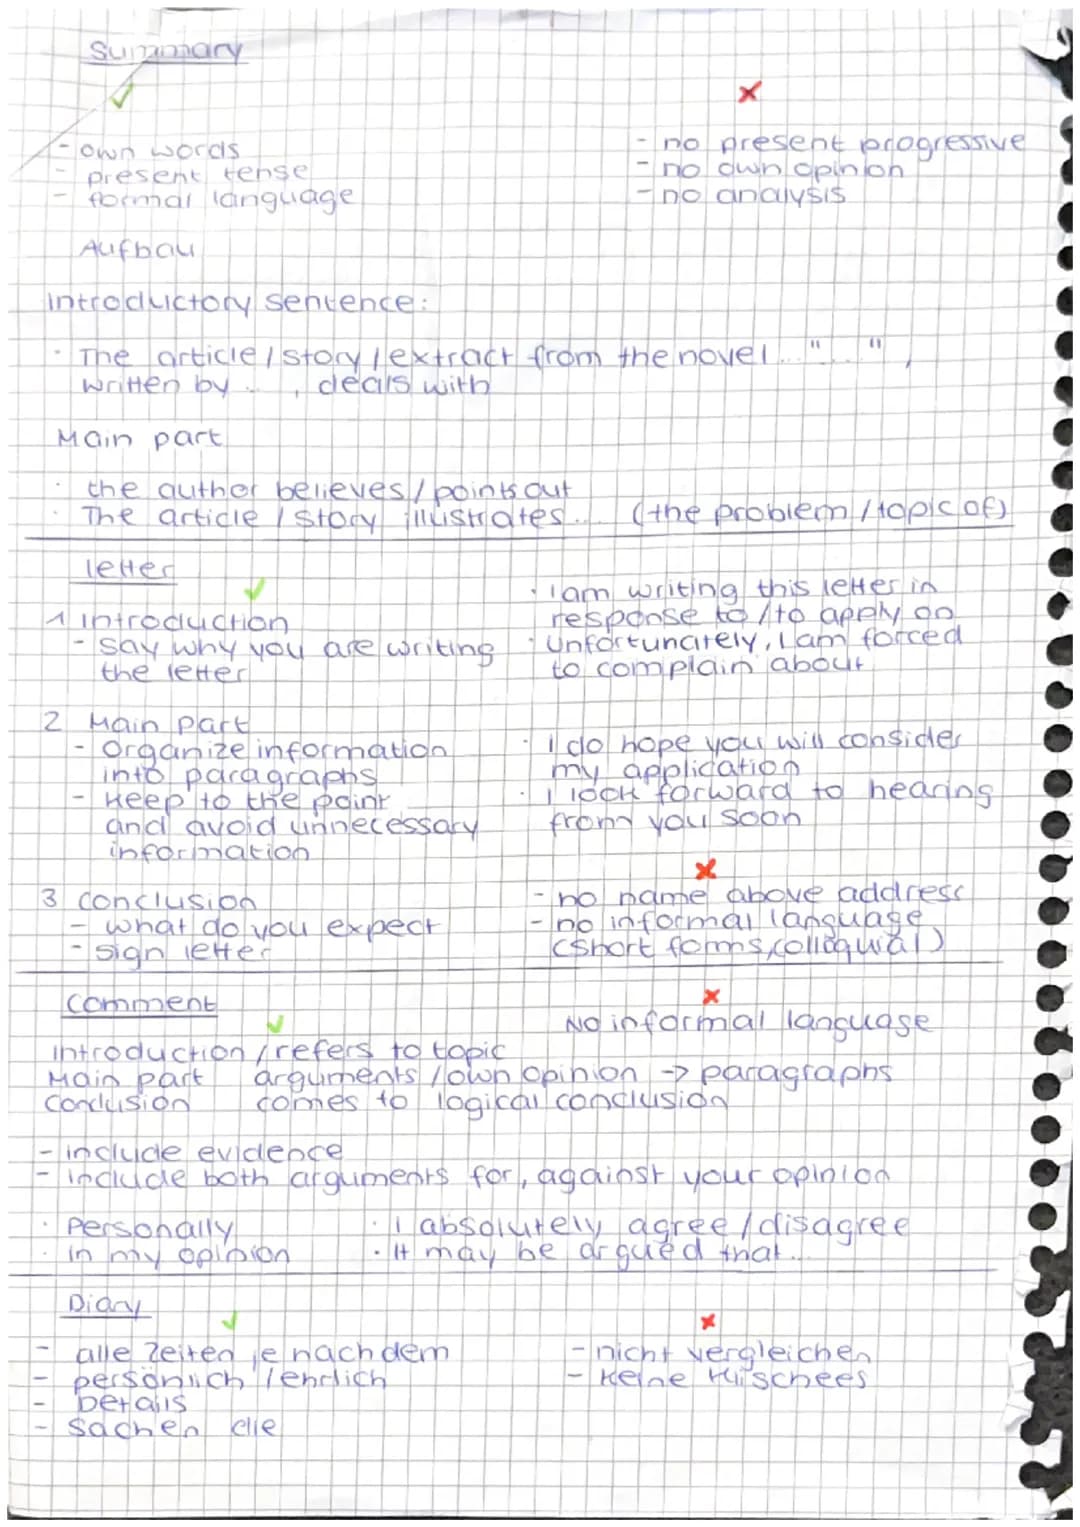 Summary
✓
✗
- own words
- present tense
- formal language
- no present progressive
- no own opinion
- no analysis
Aufbau
Introductory sentence:
· The article / story / extract from the novel... "...",
written by ..., deals with
Main part
· the author believes / points out
· The article / story illustrates... (the problem / topic of)
letter
✓
1 Introduction
- say why you are writing
the letter
· I am writing this letter in
response to / to apply on
· Unfortunately, I am forced
to complain about
2 Main part
- Organize information
into paragraphs
- Keep to the point
and avoid unnecessary
information
· I do hope you will consider
my application
· I look forward to hearing
from you soon
3 conclusion
- what do you expect
- sign letter
✗
- no name above address
- no informal language
(short forms, colloquial)
Comment
✓
✗
No informal language
Introduction / refers to topic
Main part arguments / own opinion -> paragraphs
Conclusion comes to logical conclusion
- include evidence
- include both arguments for, against your opinion
· Personally
· In my opinion
· I absolutely agree / disagree
· It may be argued that...
Diary
✓
✗
- alle Zeiten je nachdem
- persönlich / ehrlich
- Details
- Sachen die
- nicht vergleichen
- Keine Klischees